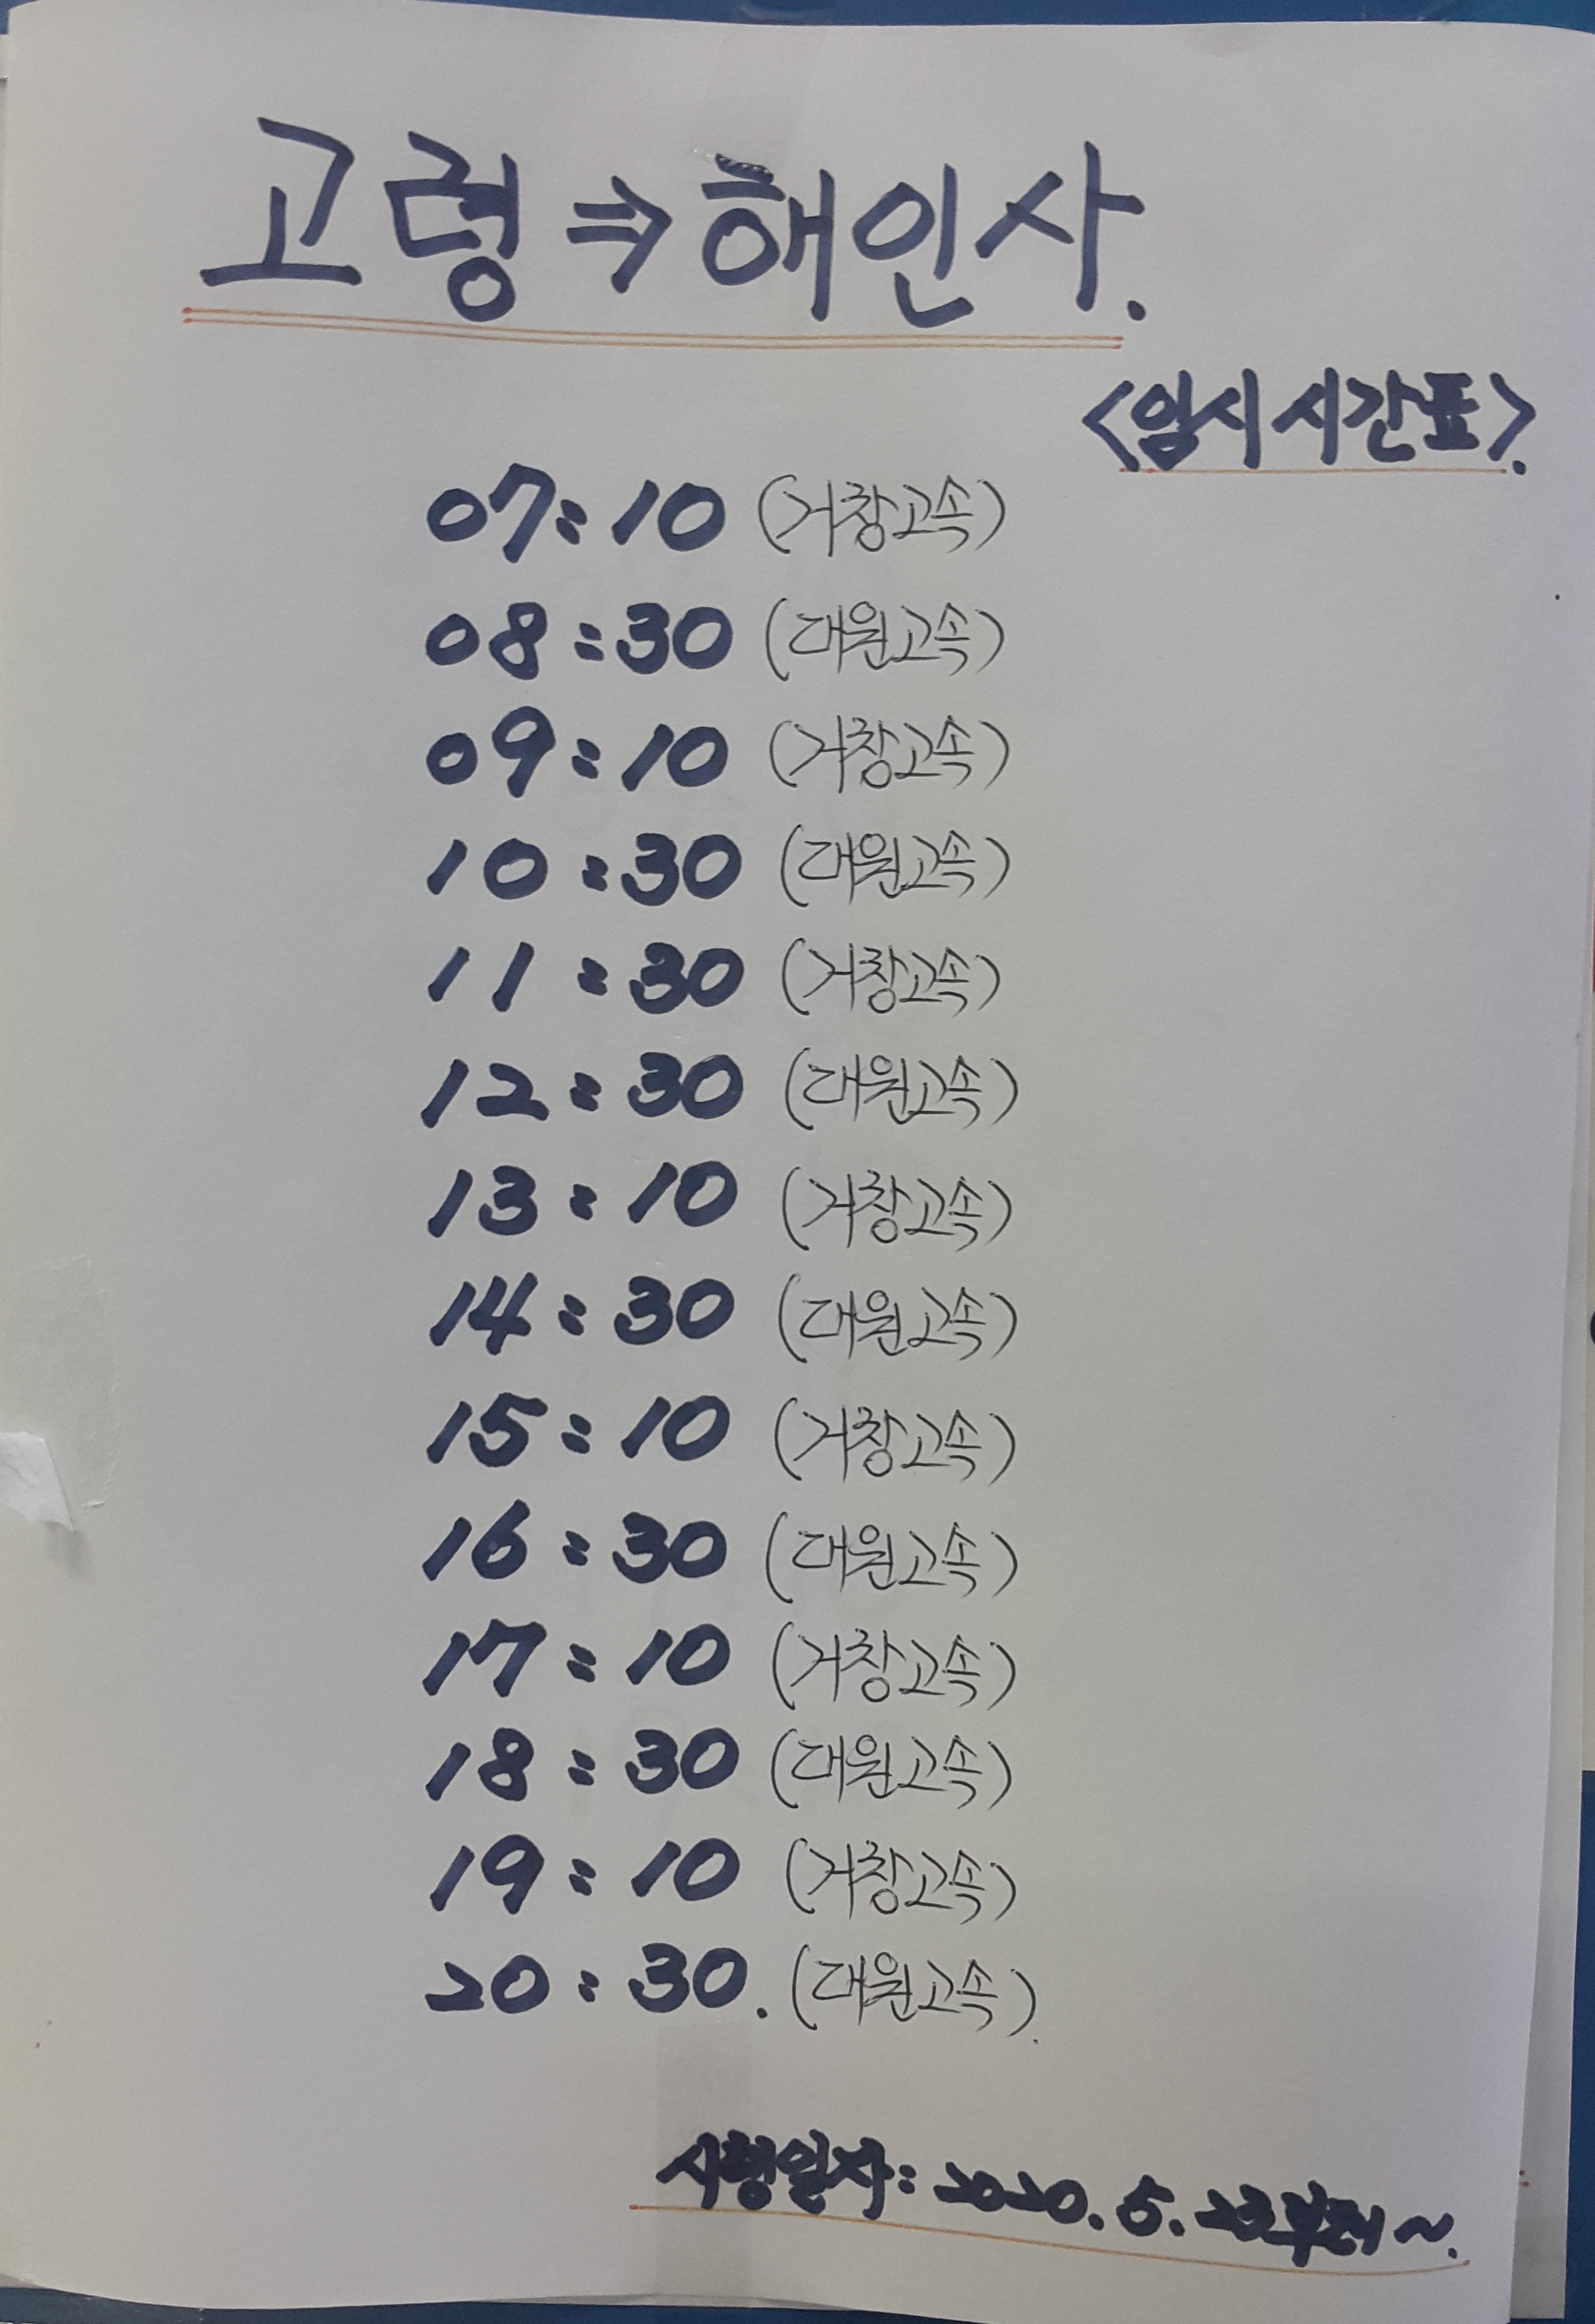 고령⇒해인사.
<임시 시간표>.
07:10 (거창고속)
08:30 (대원고속)
09:10 (거창고속)
10:30 (대원고속)
11:30 (거창고속)
12:30 (대원고속)
13:10 (거창고속)
14:30 (대원고속)
15:10 (거창고속)
16:30 (대원고속)
17:10 (거창고속)
18:30 (대원고속)
19:10 (거창고속)
20:30. (대원고속).
시행일자: 2020. 5. 23부터~.